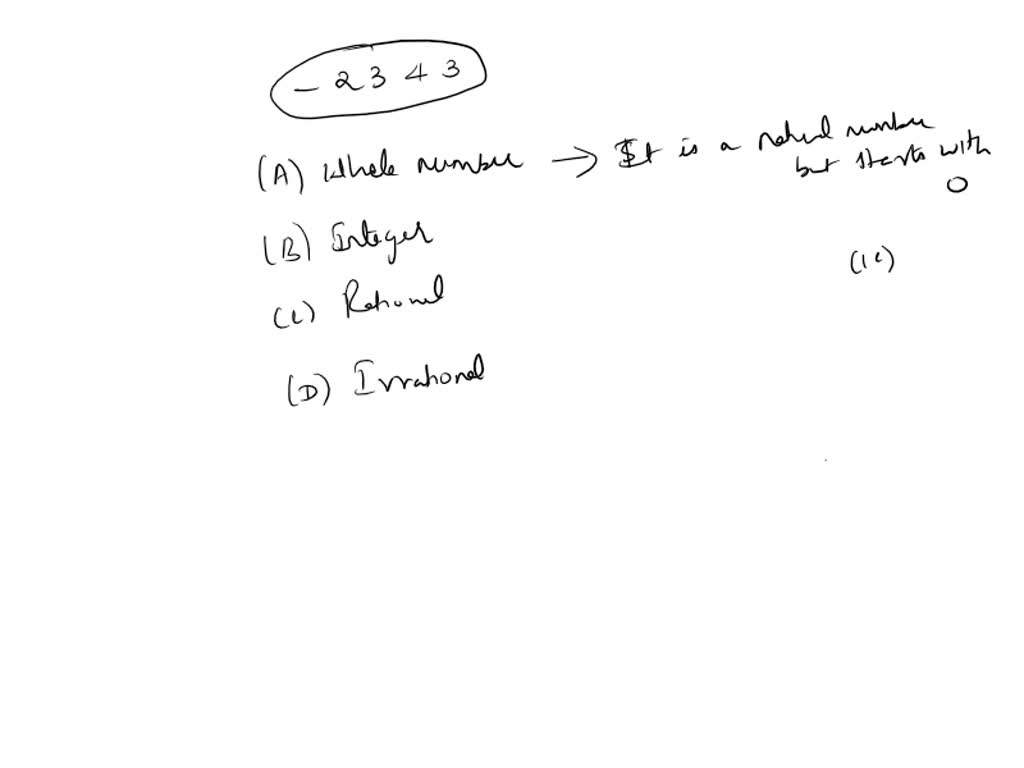 - 2 3 4 3
(A) Whole number → It is a natural number
but starts with
0
(B) Integer
(ie)
(C) Rational
(D) Irrational